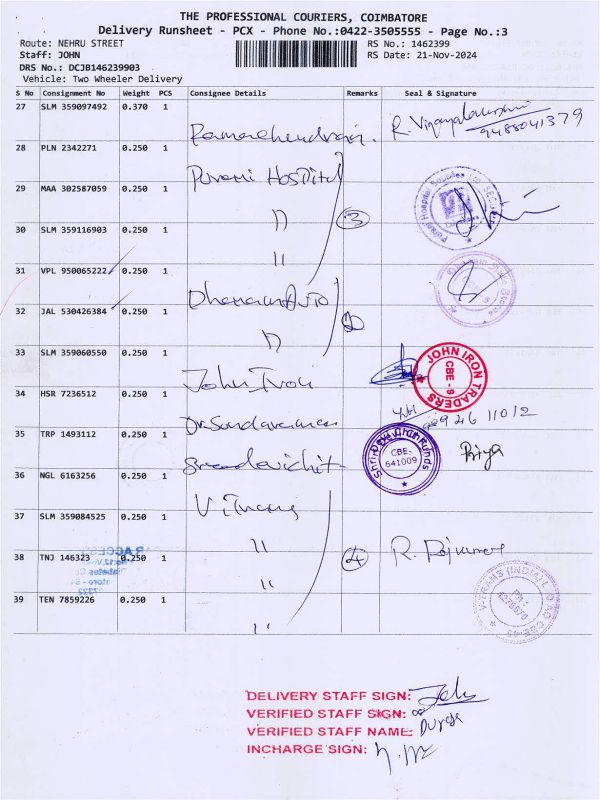 THE PROFESSIONAL COURIERS, COIMBATORE
Delivery Runsheet - PCX - Phone No.:0422-3505555 - Page No.:3
Route: NEHRU STREET RS No.: 1462399
Staff: JOHN RS Date: 21-Nov-2024
DRS No.: DCJB146239903
Vehicle: Two Wheeler Delivery
S No Consignment No Weight PCS Consignee Details Remarks Seal & Signature
27 SLM 359097492 0.370 1
R. 9488041379
28 PLN 2342271 0.250 1
Hospital
29 MAA 302587059 0.250 1
" 3
30 SLM 359116903 0.250 1
"
31 VPL 950065222 0.250 1
32 JAL 530426384 0.250 1
" 2
33 SLM 359060550 0.250 1
John Iron JOHN IRON TRADERS CBE - 9
34 HSR 7236512 0.250 1
35 TRP 1493112 0.250 1
CBE- 641009 Priya
36 NGL 6163256 0.250 1
37 SLM 359084525 0.250 1
" 4 R. Rajkumar
38 TNJ 146323 0.250 1
"
39 TEN 7859226 0.250 1
V-TRANS (INDIA) LTD CBE-45
PH: 4276670
"
DELIVERY STAFF SIGN: John
VERIFIED STAFF SIGN:
VERIFIED STAFF NAME: Durga
INCHARGE SIGN: